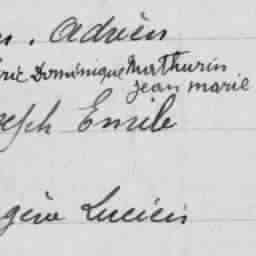 n. Adrien
éric Dominique Mathurin
jean marie
oseph Emile
gène Lucien